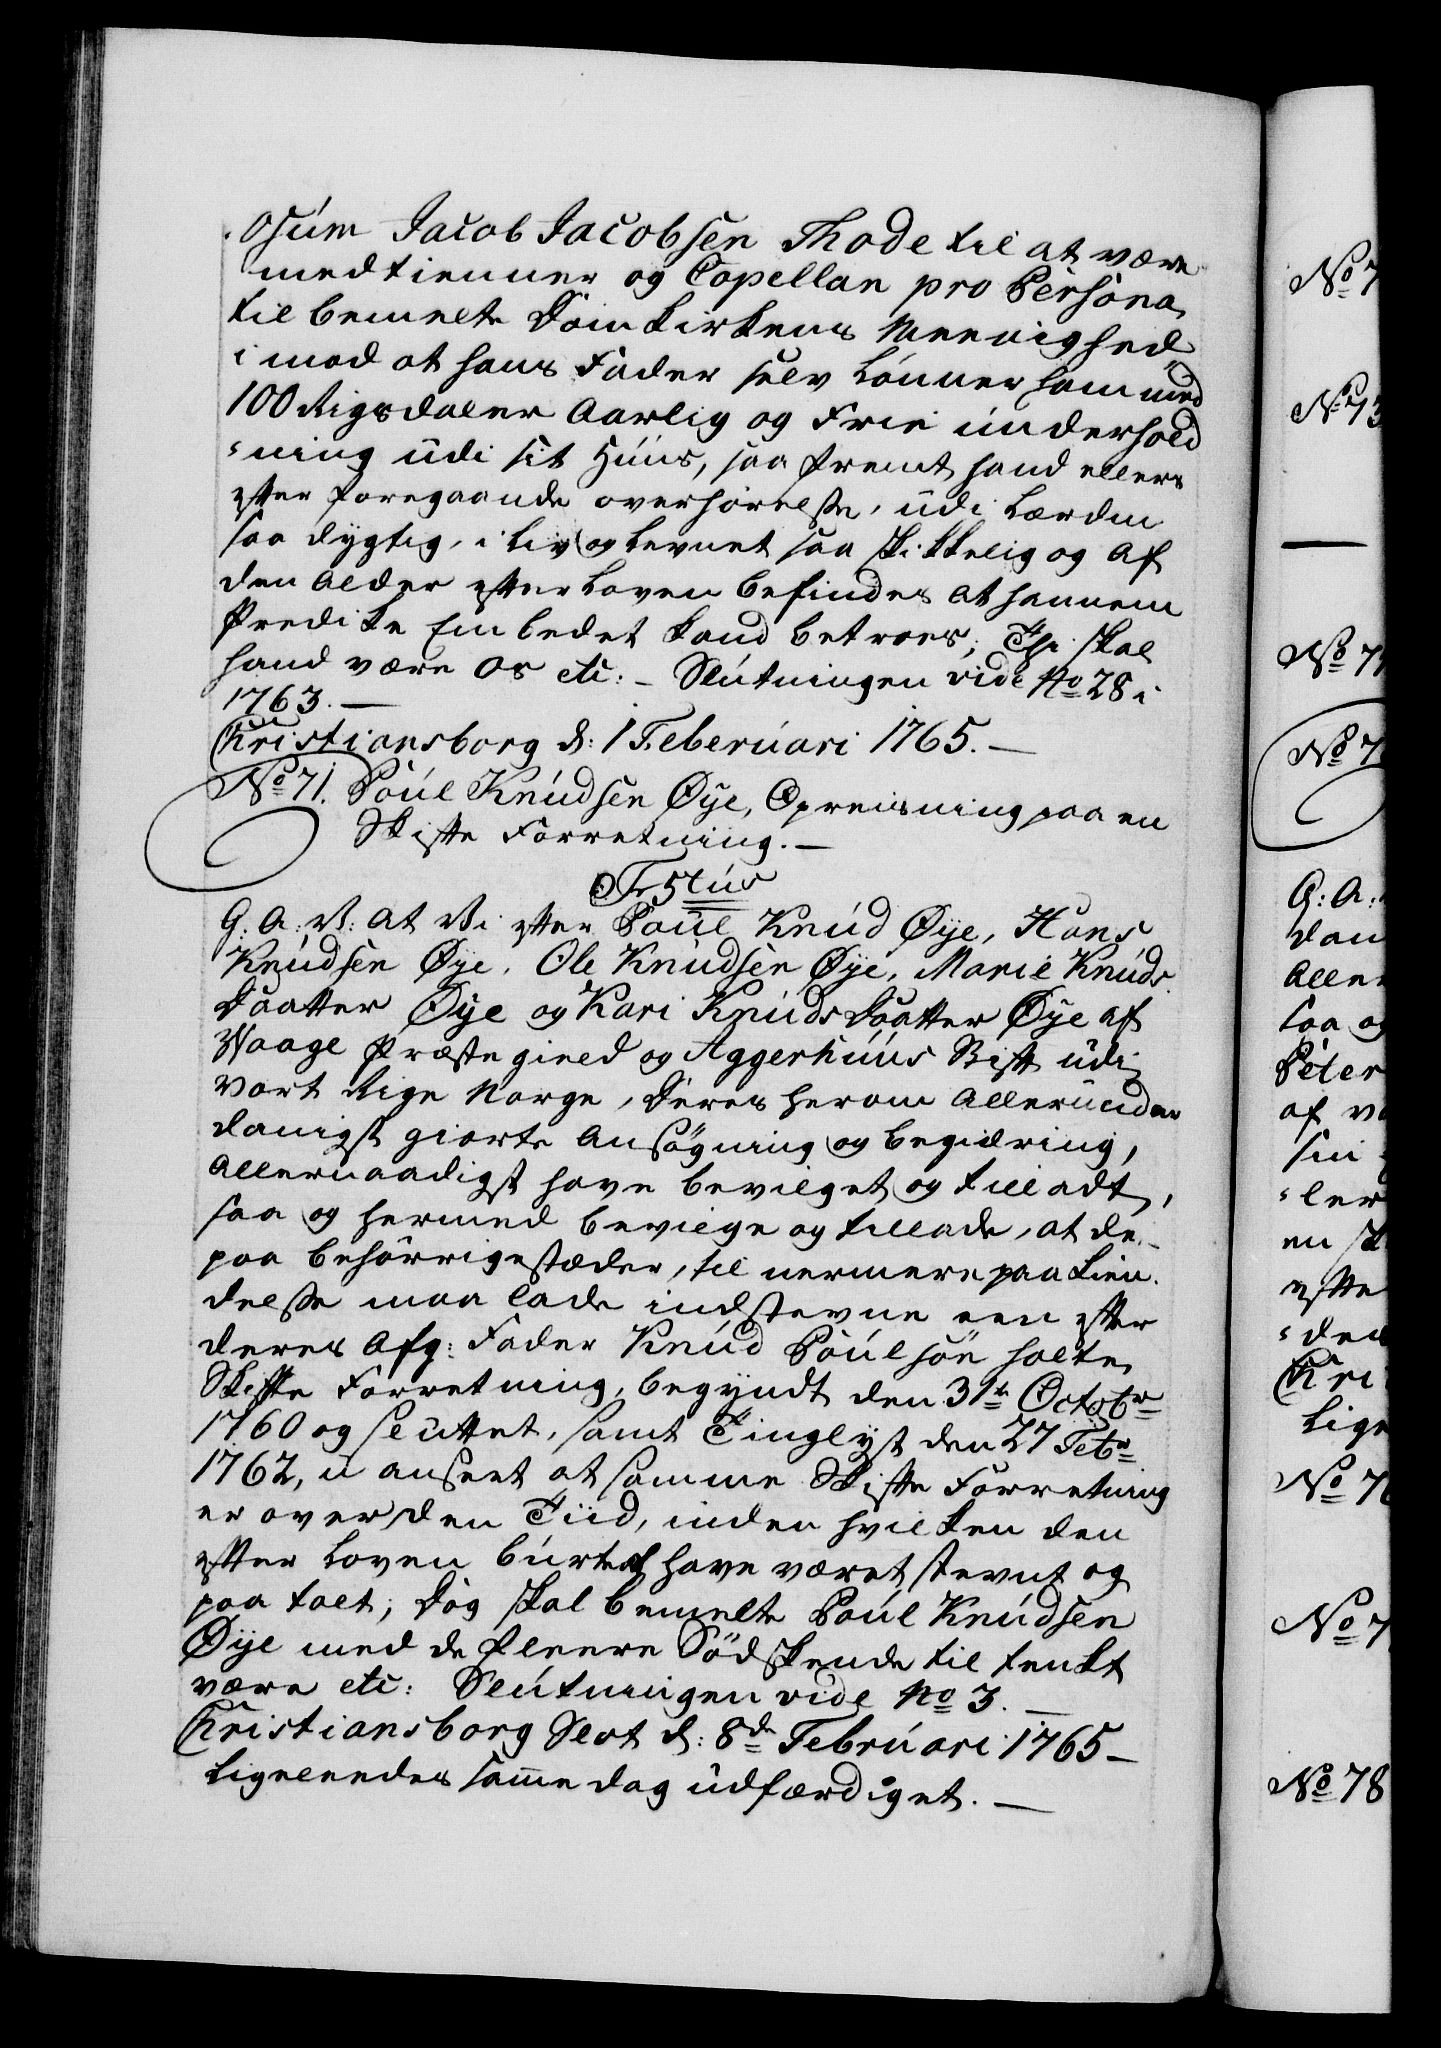 osúm Jacob Jacobsen Thode til at være
medtienner og Capellan pro Persona
til bemelte Domkirkens Meenighed
imod at hans Fader selv lønner ham med
100 Rigsdaler Aarlig og Frie únderhold
-ning údi sit Húús, saa fremt hand ellers
efter foregaaende overhørelse, údi Lærdom
saa dygtig, i liv og levnet saa skikkelig og af
den Alder efter Loven befindes at hannem
Predike Embedet kand betroes; Thi skal
hand være os etc: - Slútningen vide No 28 i
1763. —
Christiansborg d: 1 Feberúari 1765. —
No 71. Poúl Knúdsen Øye, Opreisning paa en
Skifte Forretning. —
Textús
G: A: V: at Vi efter Poúl Knúd Øye, Hans
Knúdsen Øye, Ole Knúdsen Øye, Marie Knúds
Daatter Øye og Kari Knúds Daatter Øye af
Waage Præstegield og Aggershúús Stift údi
vort Rige Norge, deres herom Allerúnder
danigst giorte Ansøgning og begiæring,
Allernaadigst have bevilget og tilladt,
saa og hermed bevilge og tillade, at de
paa behørrige stæder, til nermere paakien-
delse maa lade indstevne een efter
deres Afg: Fader Knúd Poúlsøn holte
Skifte Forretning, begyndt den 31te Octobr
1760 og slúttet, samt Tinglyst den 27 Febr
1762, ú anseet at samme Skifte Forretning
er over den Tiid, inden hvilken den
efter Loven búrte have været stevnt og
paa talt; dog skal bemelte Poúl Knúdsen
Øye med de fleere Södskende til tenkt
være etc: Slútningen vide No 3. —
Christiansborg Slot d: 8de Febrúari 1765 —
Ligeleedes samme dag údfærdiget. —
No 7
No 73
No 7
No 7
G: A:
dan
Aller
saa og
Peter
af vo
sin
-ler
en sk
efter
-den
Chri
Lige
No 76
No 7
No 78